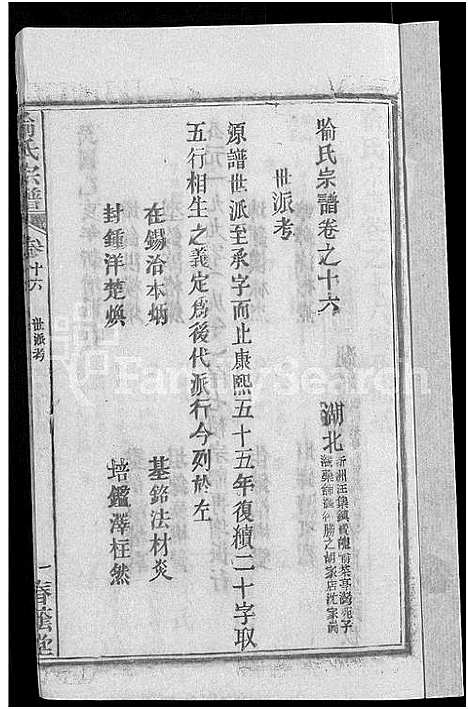 喻氏宗譜卷之十六
湖北
世派考
源譜世派至承字而止康熙五十五年復續二十字取
五行相生之義定爲後代派行今列於左
在錫洽本炳 基銘法材炎
封鍾洋楚煥 培鑑澤柱然
喻氏宗譜 卷十六 世派考 一 春蔭堂
FamilySearch